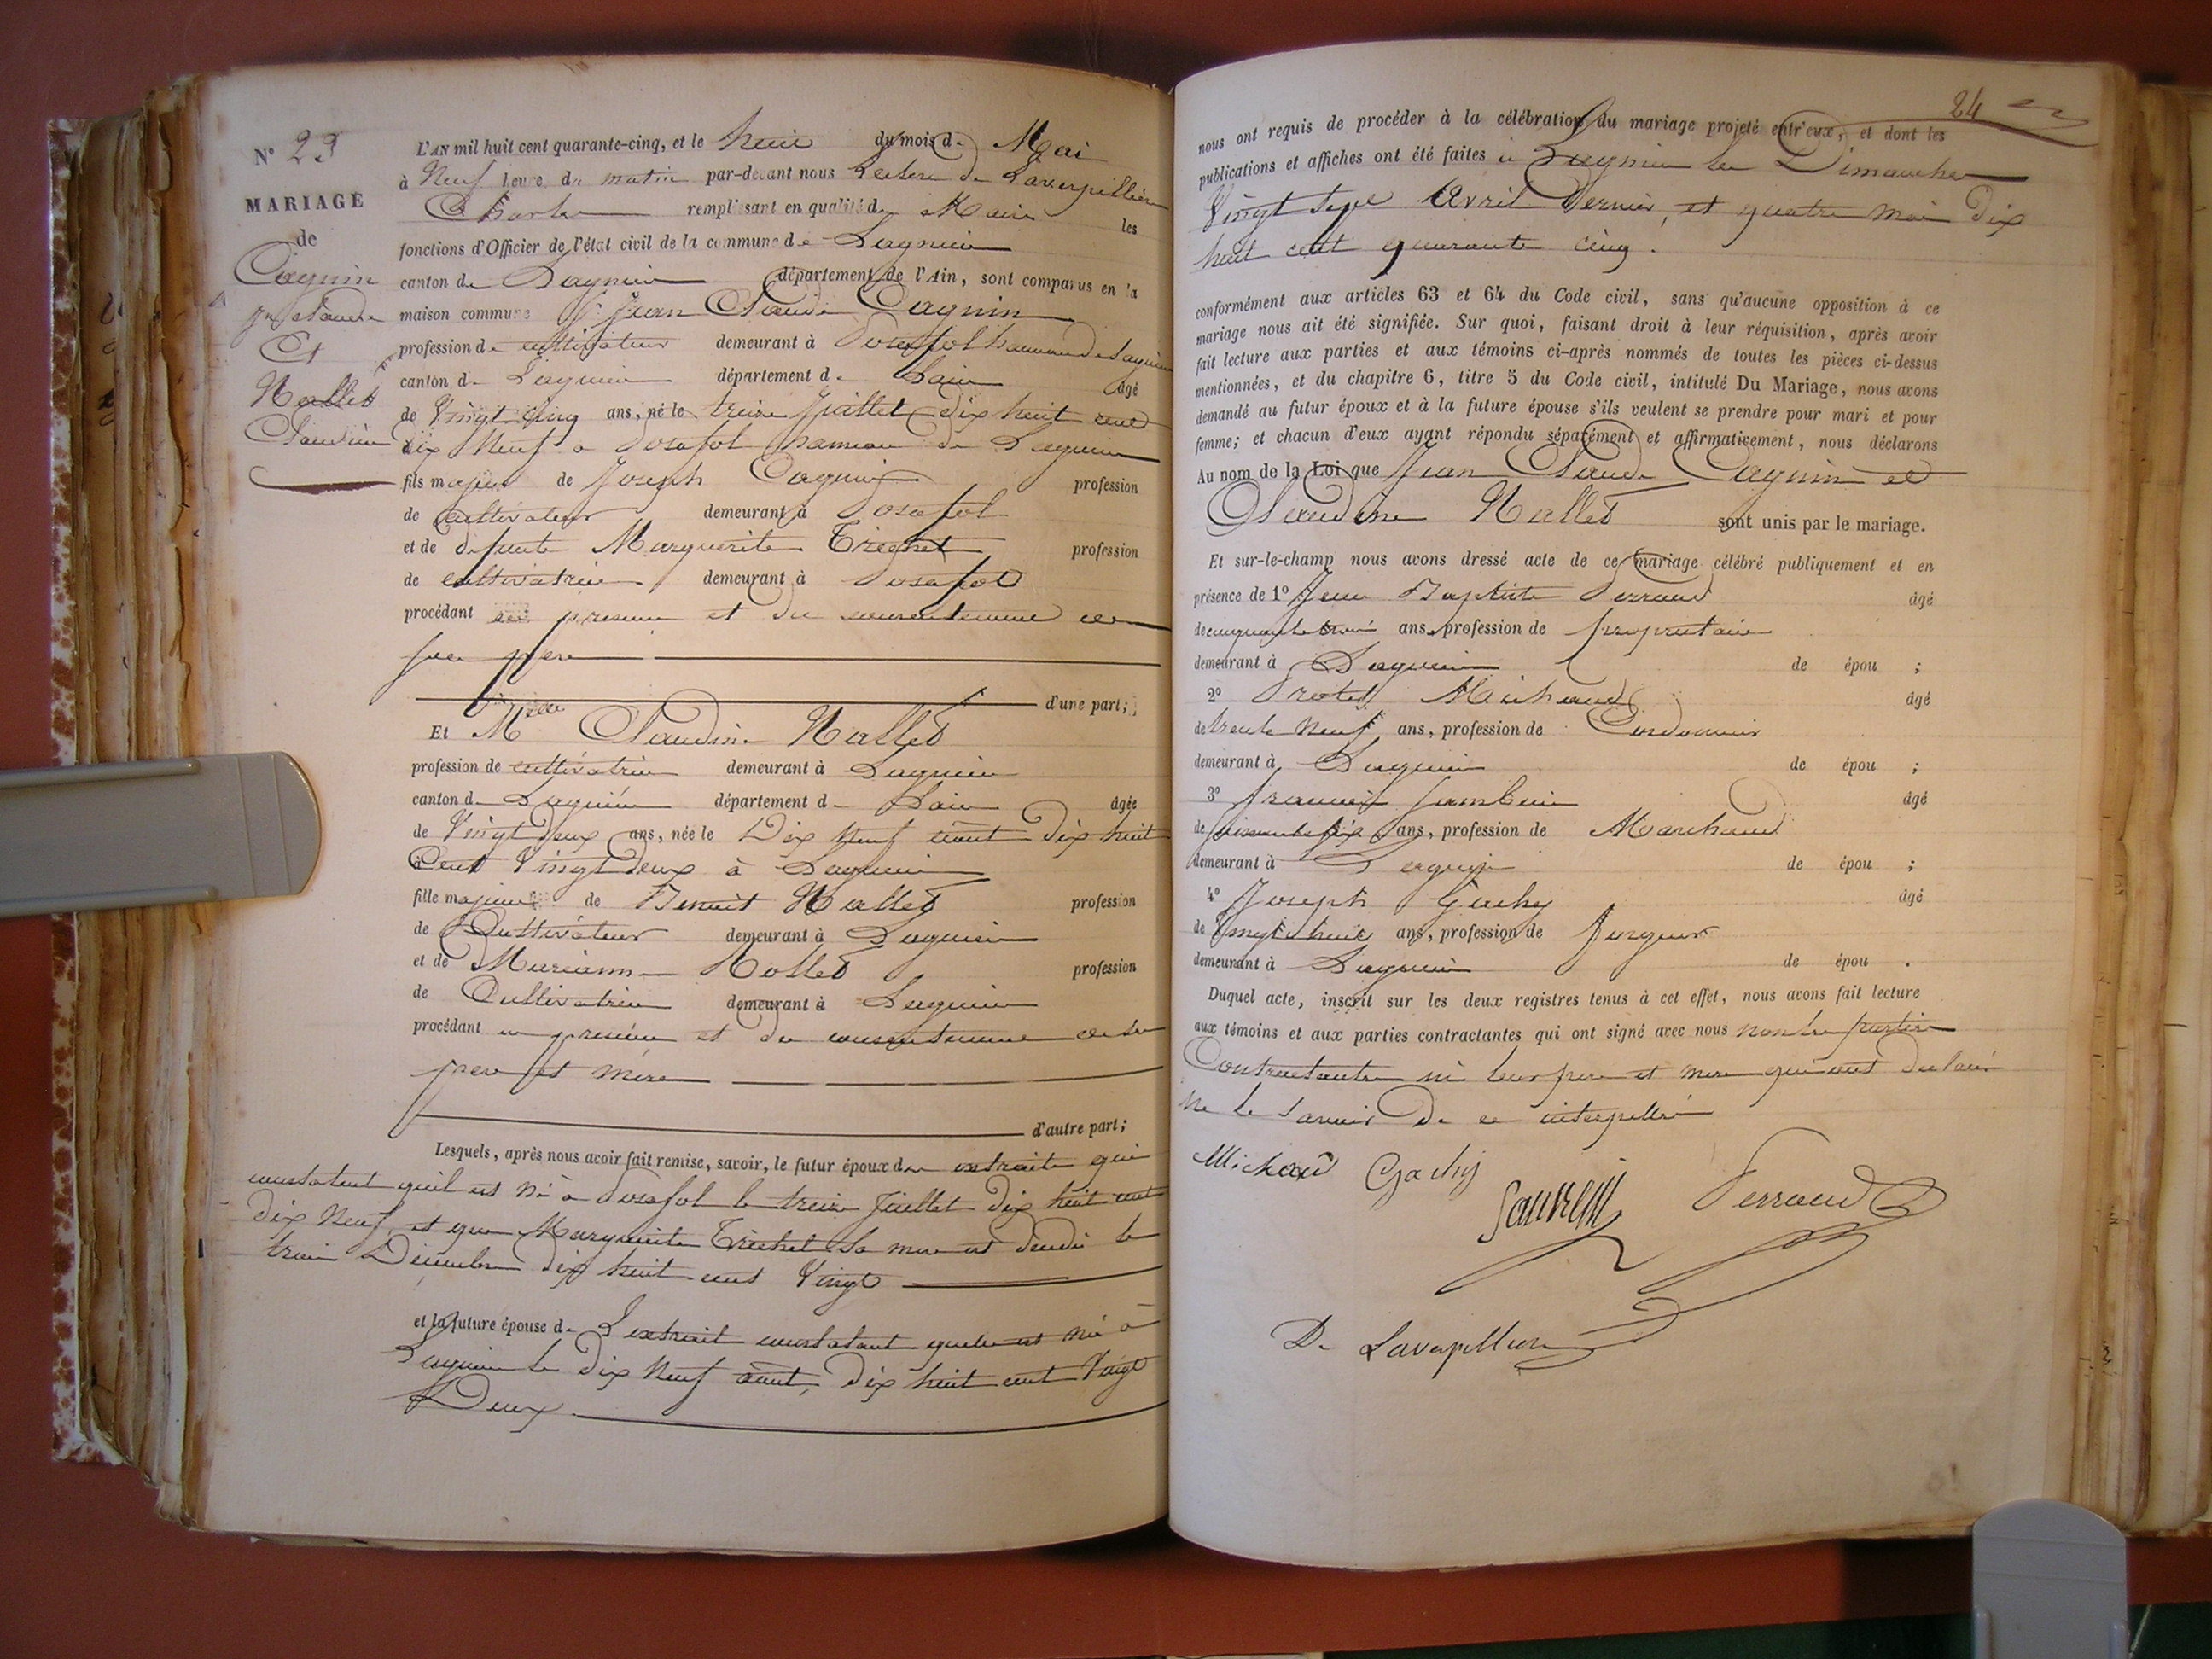 N° 23
MARIAGE
de
Cagnin
Jn Claude
Et
Nallet
Claudine
L'AN mil huit cent quarante-cinq, et le huit du mois de Mai
à Neuf heure du matin par-devant nous de Laverpillière
Charles remplissant en qualité de Maire les
fonctions d'Officier de l'état civil de la commune de Lagnieu
canton de Lagnieu département de l'Ain, sont comparus en la
maison commune Sr Jean Claude Cagnin
profession de cultivateur demeurant à Posafol hameau de Lagnieu
canton de Lagnieu département de Lain âgé
de Vingt cinq ans, né le treize Juillet dix huit cent
dix Neuf a Posafol hameau de Lagnieu
fils majeur de Joseph Cagnin profession
de Cultivateur demeurant à Posafol
et de défunte Marguerite profession
de cultivatrice demeurant à Posafol
procédant en présence et du consentement de
son père
d'une part;
Et Melle Claudine Nallet
profession de cultivatrice demeurant à Lagnieu
canton de Lagnieu département de Lain âgée
de Vingt deux ans, née le Dix Neuf août Dix huit
Cent Vingt deux à Lagnieu
fille majeure de Benoit Nallet profession
de Cultivateur demeurant à Lagnieu
et de Marianne Nollet profession
de Cultivatrice demeurant à Lagnieu
procédant en présence et du consentement de ses
père et mère
d'autre part;
Lesquels, après nous avoir fait remise, savoir, le futur époux des extraits qui
constatent quil est né à Posafol le treize Juillet Dix huit cent
Dix Neuf, et que Marguerite Tréchet sa mère est décédée le
trois Décembre dix huit cent Vingt
et la future épouse de Lextrait constatant quelle est née à
Lagnieu le Dix Neuf août, Dix huit cent Vingt
Deux.
24
nous ont requis de procéder à la célébration du mariage projeté entr'eux, et dont les
publications et affiches ont été faites à Lagnieu les Dimanches
Vingt sept Avril Dernier, et quatre Mai Dix
huit cent quarante cinq.
conformément aux articles 63 et 64 du Code civil, sans qu'aucune opposition à ce
mariage nous ait été signifiée. Sur quoi, faisant droit à leur réquisition, après avoir
fait lecture aux parties et aux témoins ci-après nommés de toutes les pièces ci-dessus
mentionnées, et du chapitre 6, titre 5 du Code civil, intitulé Du Mariage, nous avons
demandé au futur époux et à la future épouse s'ils veulent se prendre pour mari et pour
femme; et chacun d'eux ayant répondu séparément et affirmativement, nous déclarons
Au nom de la Loi que Jean Claude Cagnin et
Claudine Nallet sont unis par le mariage.
Et sur-le-champ nous avons dressé acte de ce mariage célébré publiquement et en
présence de 1° Jean Baptiste Perraud âgé
de cinquante trois ans, profession de propriétaire
demeurant à Lagnieu de épou ;
2° Protet Michaud âgé
de trente Neuf ans, profession de Cordonnier
demeurant à Lagnieu de épou ;
3° François âgé
de ans, profession de Marchand
demeurant à Lagnieu de épou ;
4° Joseph Gachy âgé
de Vingt huit ans, profession de
demeurant à Lagnieu de épou .
Duquel acte, inscrit sur les deux registres tenus à cet effet, nous avons fait lecture
aux témoins et aux parties contractantes qui ont signé avec nous non les parties
Contractantes ni leurs père et mère qui ont déclaré
ne le savoir De ce interpellés
Michaud Gachy
Perraud
De Laverpillière